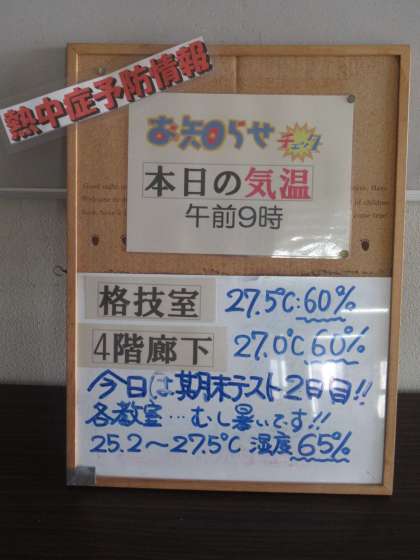 熱中症予防情報
お知らせ
チェック
本日の気温
午前9時
格技室 27.5℃:60%
4階廊下 27.0℃ 60%
今日は期末テスト2日目!!
各教室…むし暑いです!!
25.2～27.5℃ 湿度65%